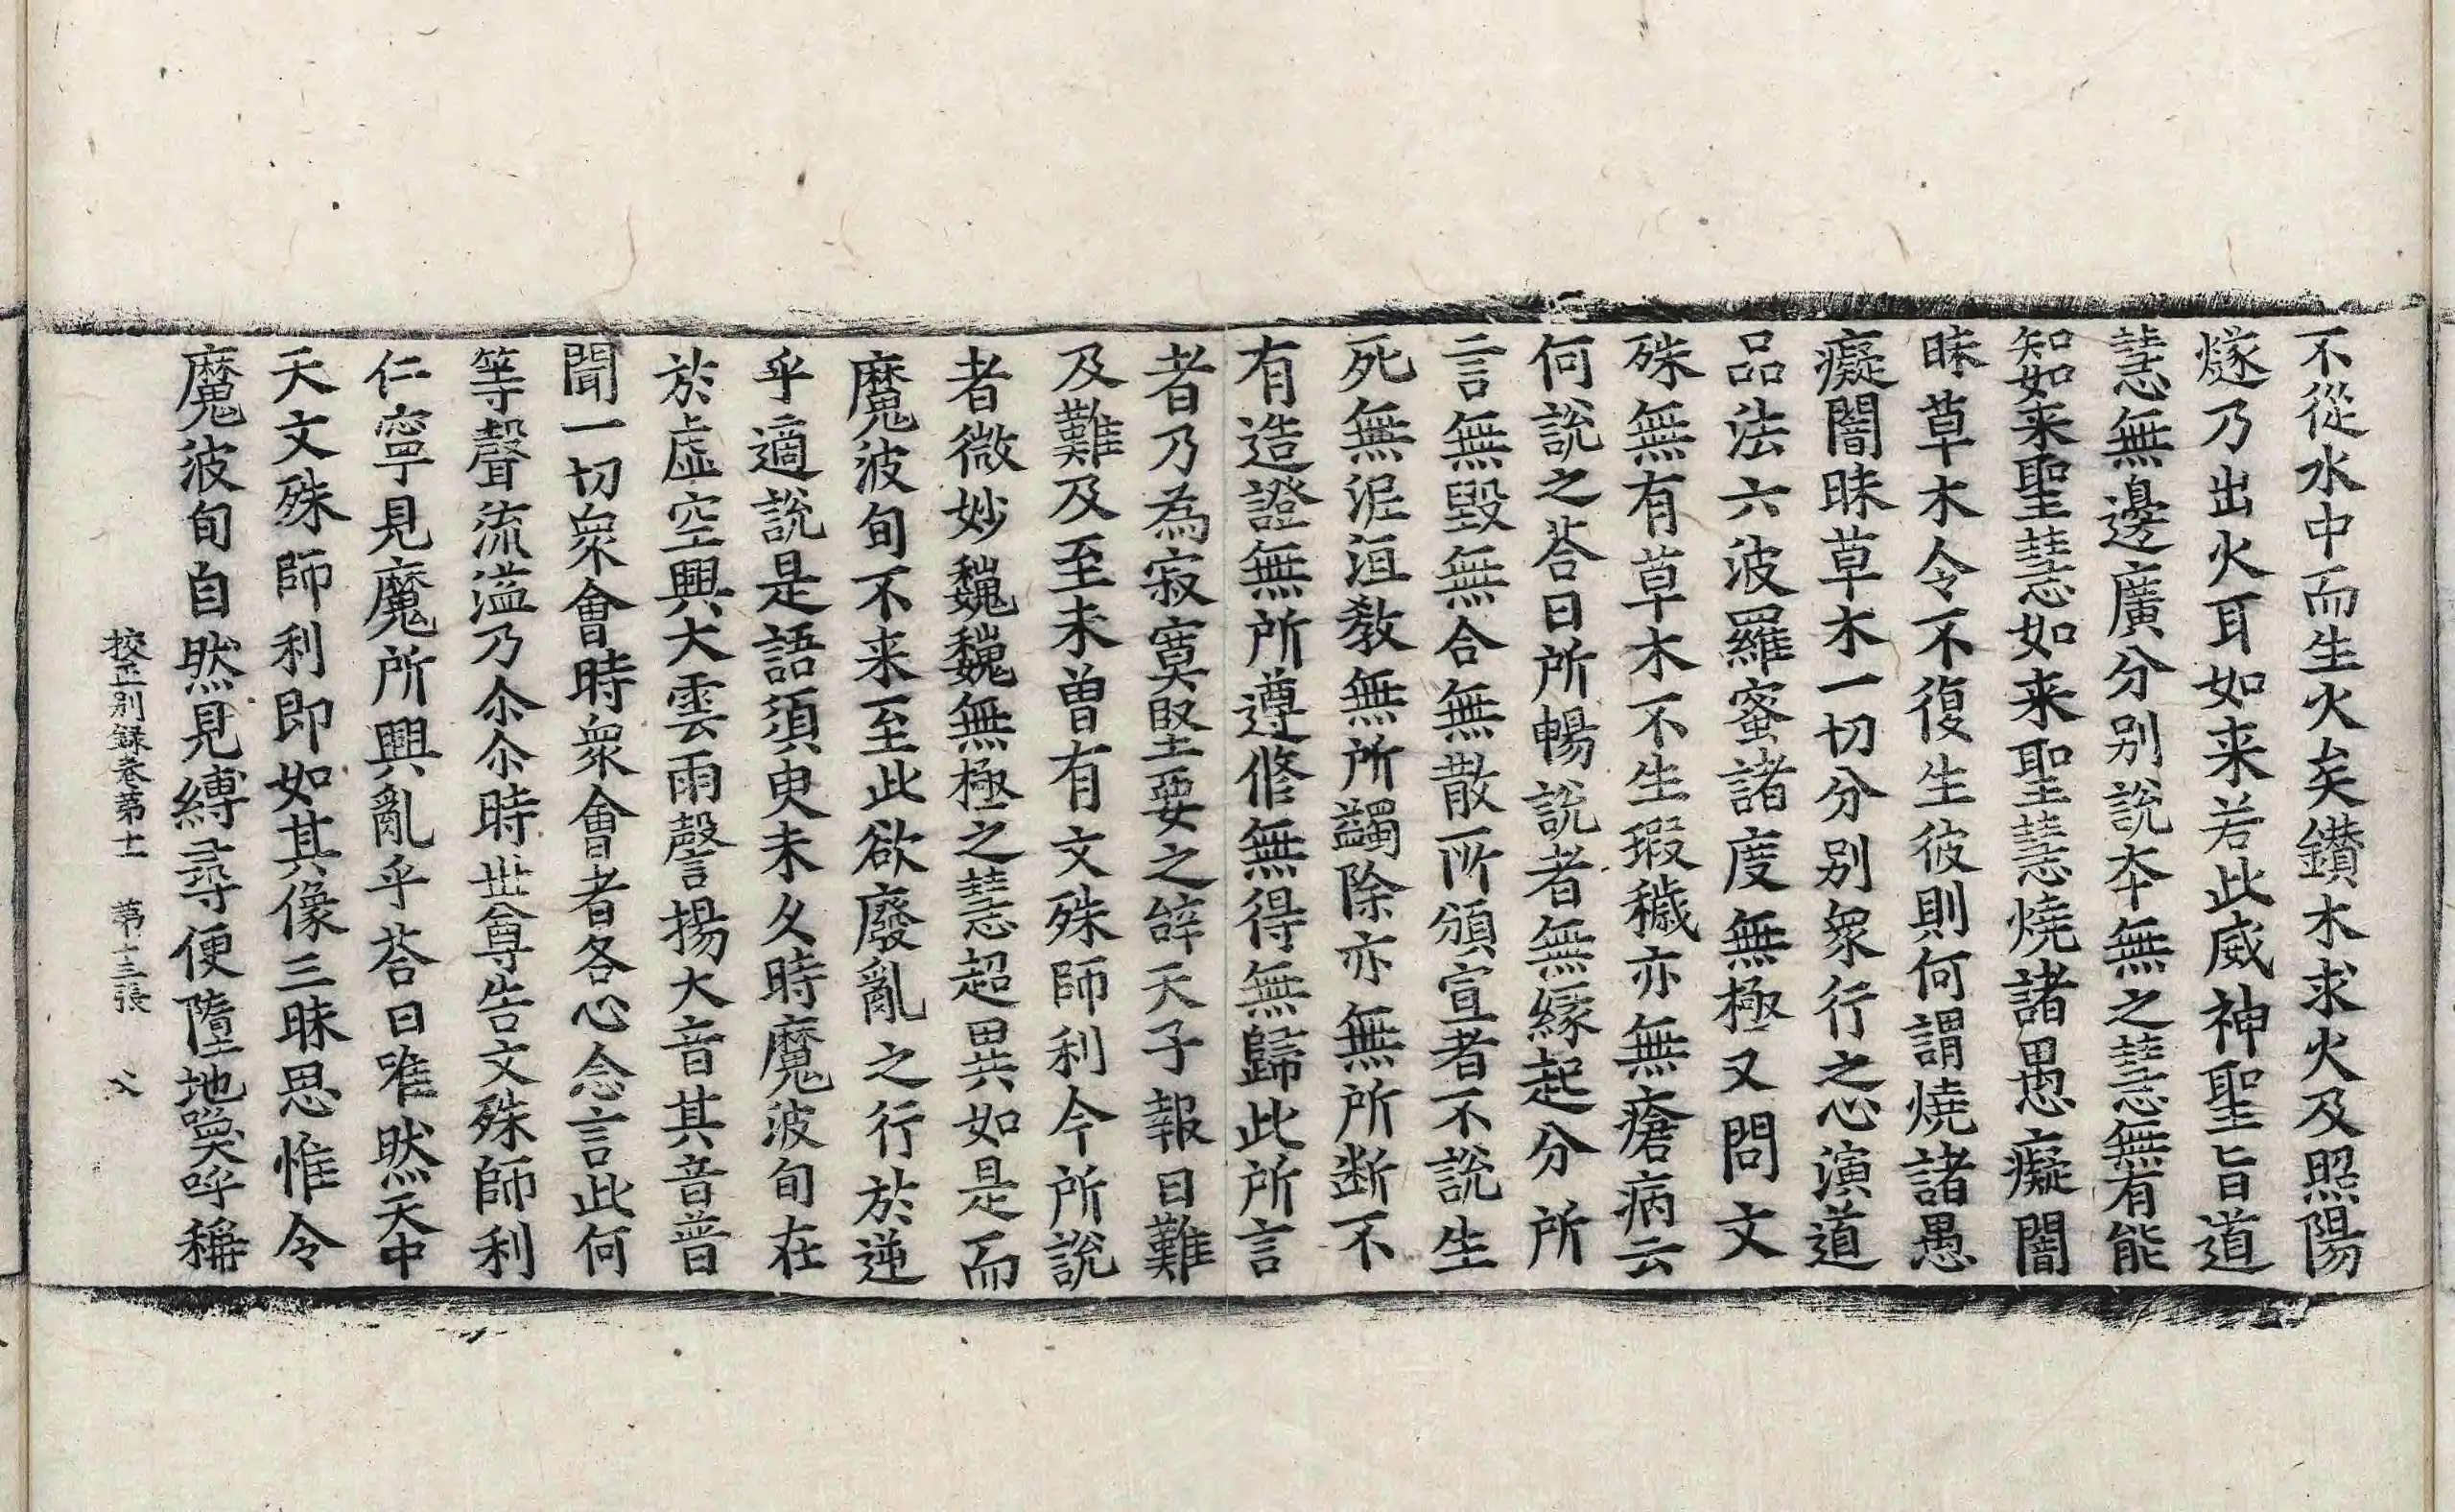 不從水中而生火矣鑽木求火及照陽
燧乃出火耳如来若此威神聖旨道
慧無邊廣分別說夲無之慧無有能
知如来聖慧如来聖慧燒諸愚癡闇
昧草木令不復生彼則何謂燒諸愚
癡闇昧草木一切分別衆行之心演道
品法六波羅蜜諸度無極又問文
殊無有草木不生瑕穢亦無瘡病云
何說之荅曰所暢說者無緣起分所
言無毀無合無散所頒宣者不說生
死無泥洹教無所蠲除亦無所断不
有造證無所遵修無得無歸此所言
者乃為寂寞堅要之辝天子報曰難
及難及至未曽有文殊師利今所說
者微妙巍巍無極之慧超異如是而
魔波旬不来至此欲廢亂之行於逆
乎適說是語須臾未久時魔波旬在
於虛空興大雲雨聲揚大音其音普
聞一切衆會時衆會者各心念言此何
等聲流溢乃尒尒時世尊告文殊師利
仁寧見魔所興亂乎荅曰唯然天中
天文殊師利即如其像三昧思惟令
魔波旬自然見縛尋便墮地喚呼稱
挍正別録卷第十一　第十三張　父